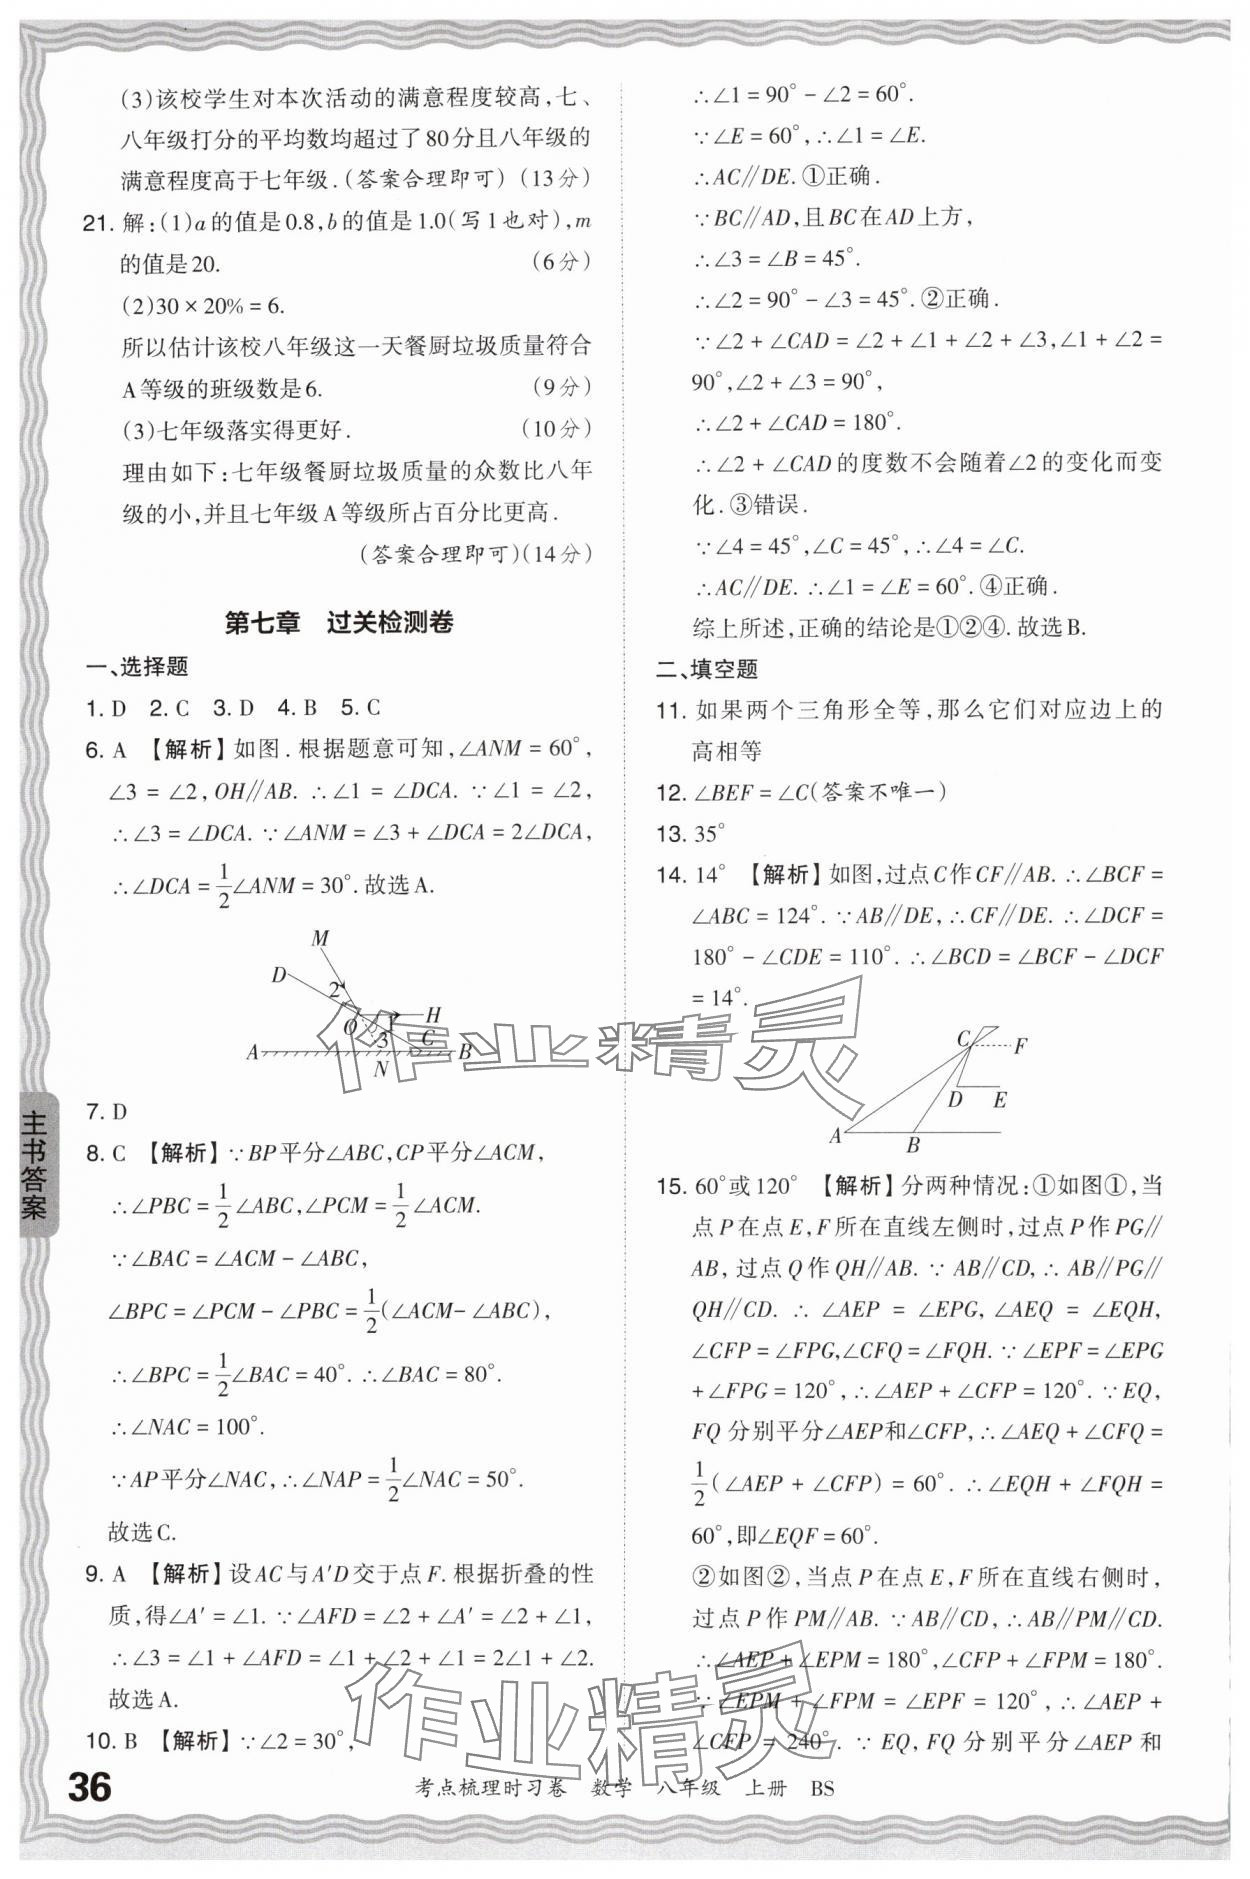 (3)该校学生对本次活动的满意程度较高,七、
八年级打分的平均数均超过了80分且八年级的
满意程度高于七年级.(答案合理即可)(13分)
21. 解:(1)a的值是0.8,b的值是1.0(写1也对),m
的值是20. (6分)
(2)30×20%=6.
所以估计该校八年级这一天餐厨垃圾质量符合
A等级的班级数是6. (9分)
(3)七年级落实得更好. (10分)
理由如下:七年级餐厨垃圾质量的众数比八年
级的小,并且七年级A等级所占百分比更高.
(答案合理即可)(14分)
第七章 过关检测卷
一、选择题
1. D 2. C 3. D 4. B 5. C
6. A 【解析】如图.根据题意可知,∠ANM=60°,
∠3=∠2,OH∥AB.∴∠1=∠DCA.∵∠1=∠2,
∴∠3=∠DCA.∵∠ANM=∠3+∠DCA=2∠DCA,
∴∠DCA=1/2∠ANM=30°.故选A.
M
D
2
O
1
H
3
C
A
N
B
7. D
8. C 【解析】∵BP平分∠ABC,CP平分∠ACM,
∴∠PBC=1/2∠ABC,∠PCM=1/2∠ACM.
∵∠BAC=∠ACM-∠ABC,
∠BPC=∠PCM-∠PBC=1/2(∠ACM-∠ABC),
∴∠BPC=1/2∠BAC=40°.∴∠BAC=80°.
∴∠NAC=100°.
∵AP平分∠NAC,∴∠NAP=1/2∠NAC=50°.
故选C.
9. A 【解析】设AC与A'D交于点F.根据折叠的性
质,得∠A'=∠1.∵∠AFD=∠2+∠A'=∠2+∠1,
∴∠3=∠1+∠AFD=∠1+∠2+∠1=2∠1+∠2.
故选A.
10. B 【解析】∵∠2=30°,
∴∠1=90°-∠2=60°.
∵∠E=60°,∴∠1=∠E.
∴AC∥DE.①正确.
∵BC∥AD,且BC在AD上方,
∴∠3=∠B=45°.
∴∠2=90°-∠3=45°.②正确.
∵∠2+∠CAD=∠2+∠1+∠2+∠3,∠1+∠2=
90°,∠2+∠3=90°,
∴∠2+∠CAD=180°.
∴∠2+∠CAD的度数不会随着∠2的变化而变
化.③错误.
∵∠4=45°,∠C=45°,∴∠4=∠C.
∴AC∥DE.∴∠1=∠E=60°.④正确.
综上所述,正确的结论是①②④.故选B.
二、填空题
11. 如果两个三角形全等,那么它们对应边上的
高相等
12. ∠BEF=∠C(答案不唯一)
13. 35°
14. 14° 【解析】如图,过点C作CF∥AB.∴∠BCF=
∠ABC=124°.∵AB∥DE,∴CF∥DE.∴∠DCF=
180°-∠CDE=110°.∴∠BCD=∠BCF-∠DCF
=14°.
C
F
D
E
A
B
15. 60°或120° 【解析】分两种情况:①如图①,当
点P在点E,F所在直线左侧时,过点P作PG∥
AB,过点Q作QH∥AB.∵AB∥CD,∴AB∥PG∥
QH∥CD.∴∠AEP=∠EPG,∠AEQ=∠EQH,
∠CFP=∠FPG,∠CFQ=∠FQH.∵∠EPF=∠EPG
+∠FPG=120°,∴∠AEP+∠CFP=120°.∵EQ,
FQ分别平分∠AEP和∠CFP,∴∠AEQ+∠CFQ=
1/2(∠AEP+∠CFP)=60°.∴∠EQH+∠FQH=
60°,即∠EQF=60°.
②如图②,当点P在点E,F所在直线右侧时,
过点P作PM∥AB.∵AB∥CD,∴AB∥PM∥CD.
∴∠AEP+∠EPM=180°,∠CFP+∠FPM=180°.
∵∠EPM+∠FPM=∠EPF=120°,∴∠AEP+
∠CFP=240°.∵EQ,FQ分别平分∠AEP和
主书答案
36
考点梳理时习卷 数学 八年级 上册 BS
作业精灵
作业精灵